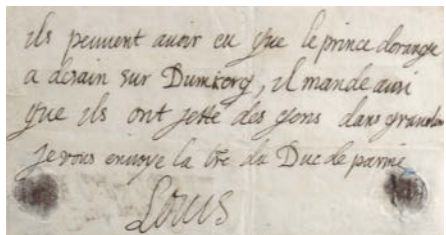 ils peuuent auoir eu que le prince dorange
a desain sur Dunkerq, il mande ausi
que ils ont jette des gens dans
je vous enuoye la lre du Duc de parme
Louis